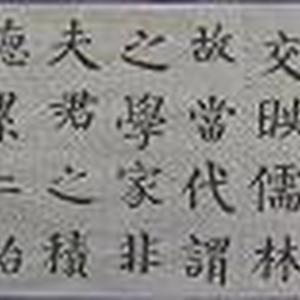 交映儒林
故當代謂
之學家非
夫君之積
德累仁